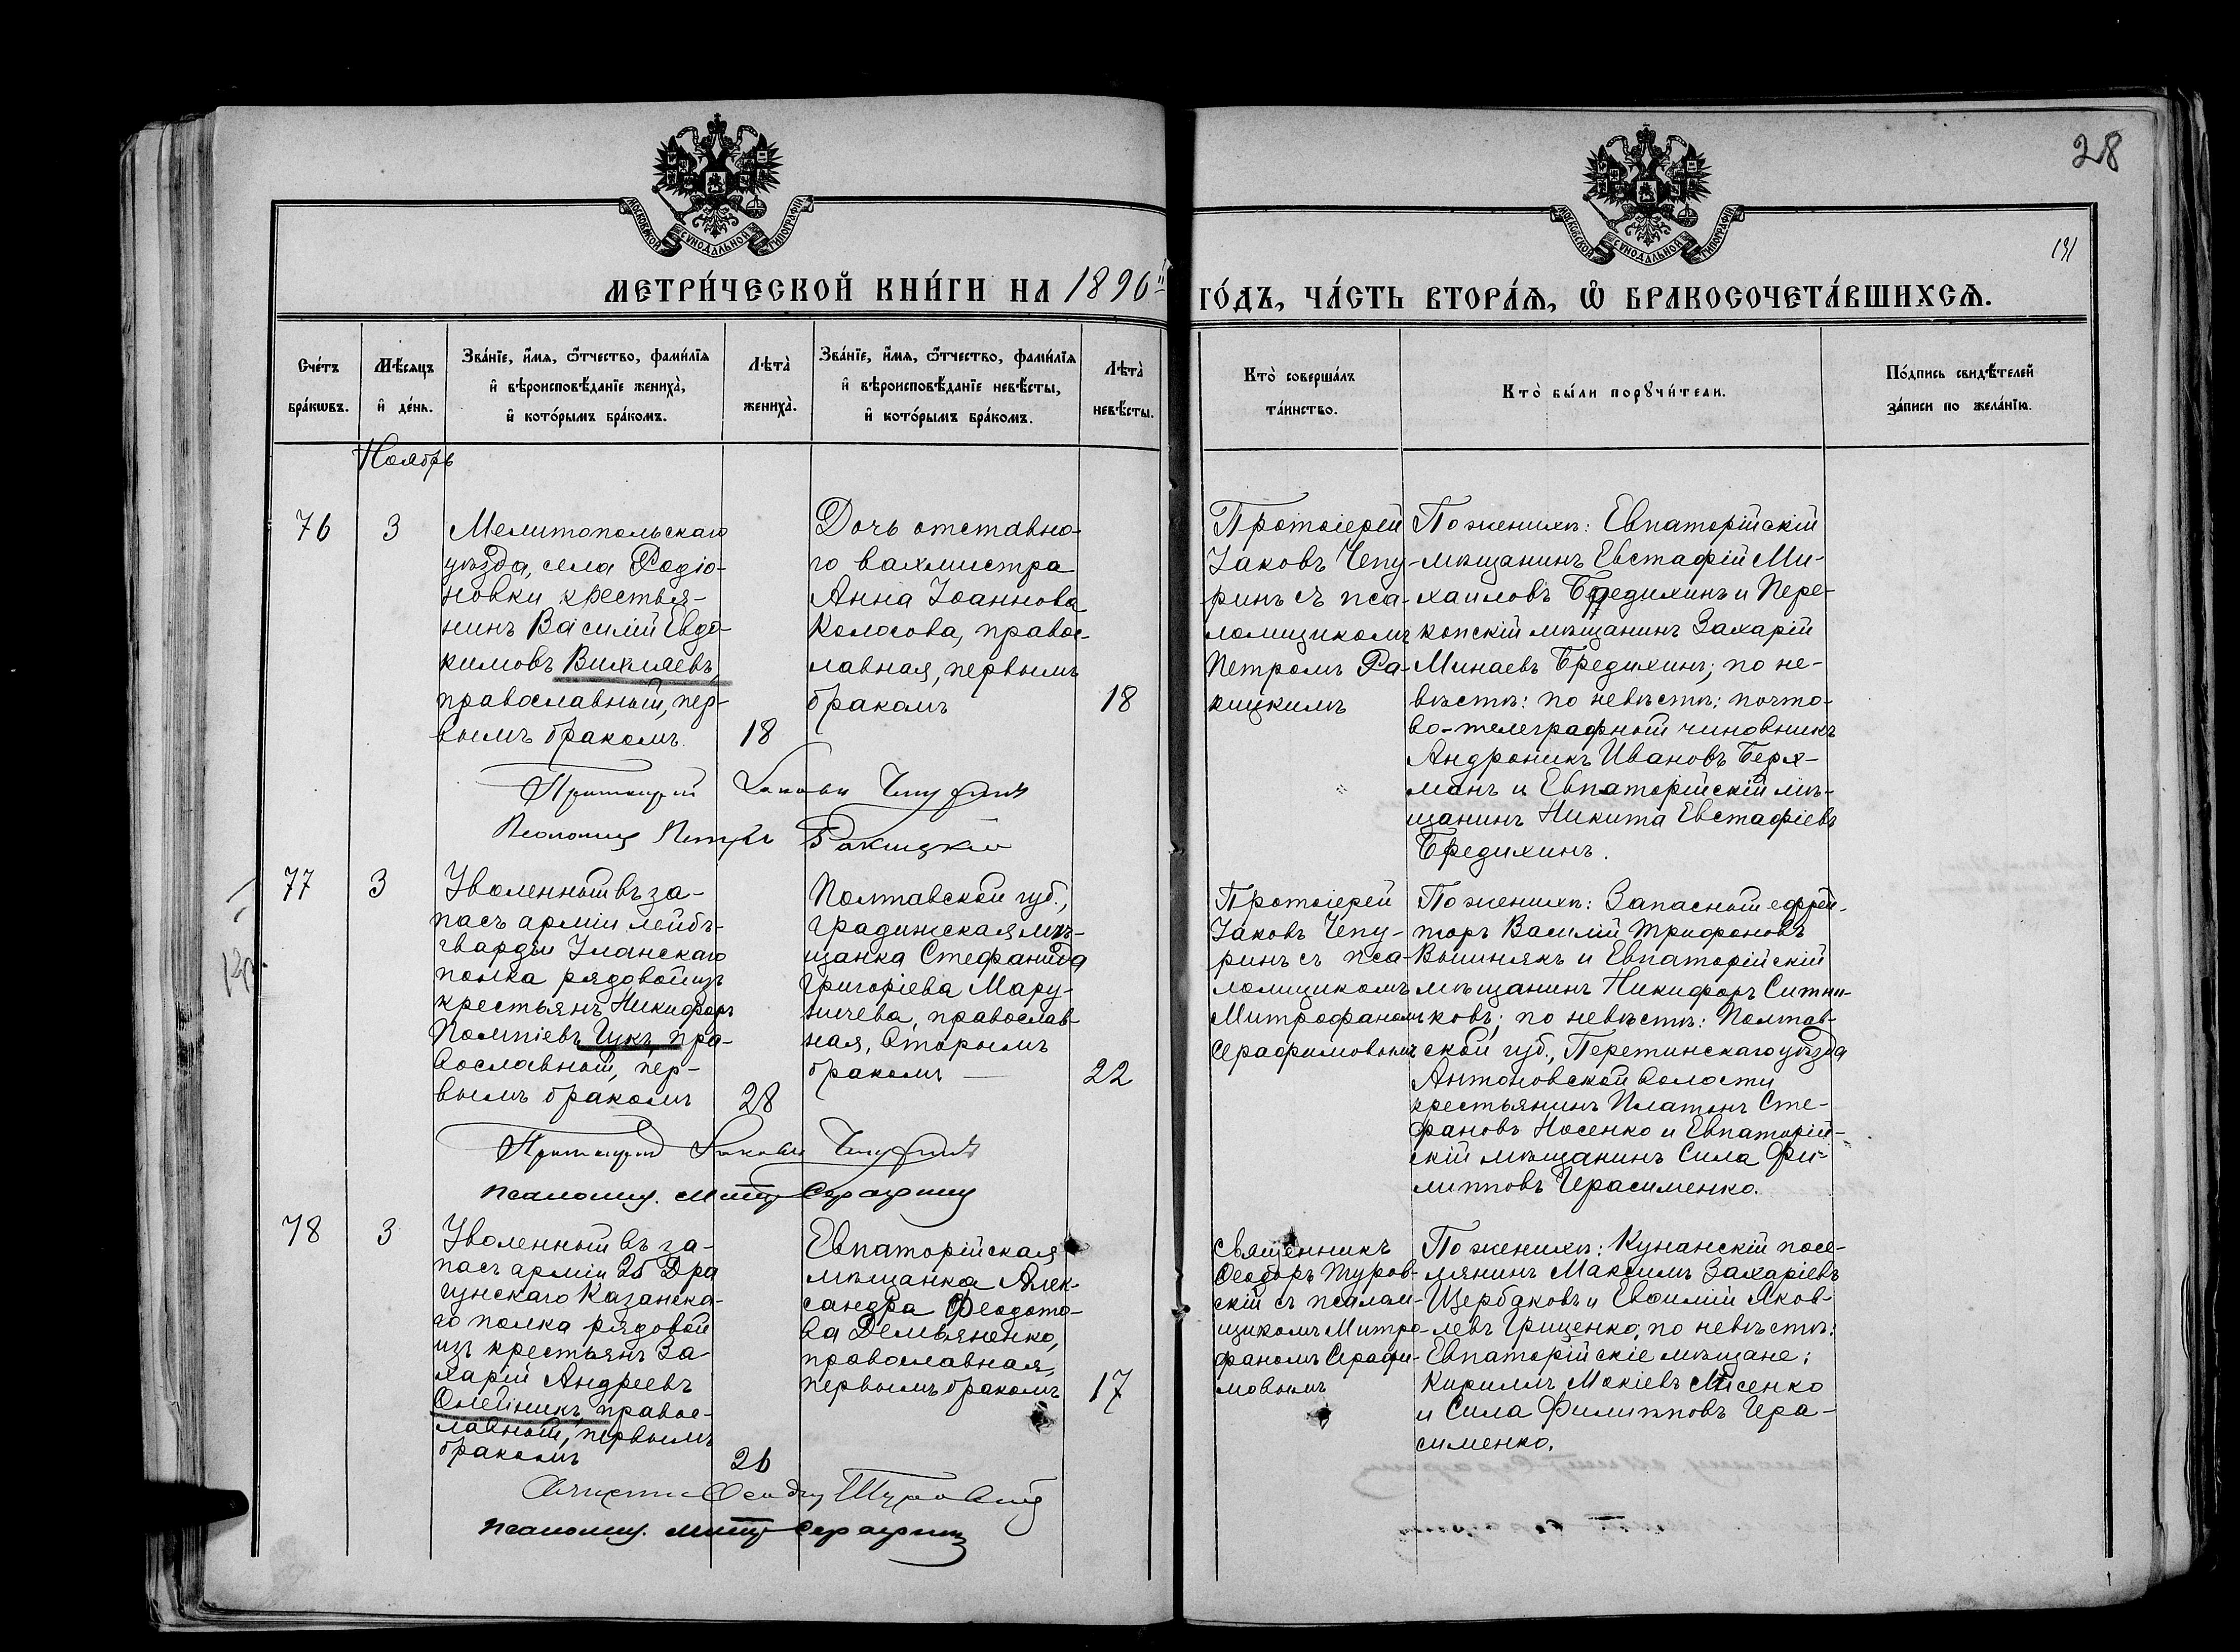 28
191
МОСКОВСКОЙ СѴНОДАЛЬНОЙ ТИПОГРАФІИ
МОСКОВСКОЙ СѴНОДАЛЬНОЙ ТИПОГРАФІИ
МЕТРИ́ЧЕСКОЙ КНИ́ГИ НА 1896й ГО́ДЪ, ЧА́СТЬ ВТОРА́Ѧ, Ѡ БРАКОСОЧЕТА́ВШИХСѦ.
Сче́тъ
бра́кѡвъ.
Мѣ́сяцъ
и҆ де́нь.
Зва́нїе, и҆́мѧ, ѻ҆́тчество, фами́лїѧ
и҆ вѣроисповѣ́данїе жениха̀,
и҆ кото́рымъ бра́комъ.
Лѣта̀
жениха̀.
Зва́нїе, и҆́мѧ, ѻ҆́тчество, фами́лїѧ
и҆ вѣроисповѣ́данїе невѣ́сты,
и҆ кото́рымъ бра́комъ.
Лѣта̀
невѣ́сты.
Кто̀ соверша́лъ
та́инство.
Кто̀ бы́ли порꙋчи́тели.
По́дпись свидѣ́телей
за́писи по жела́нїю.
Ноябрь
76
3
Мелитопольскаго
уѣзда, села Родіо-
новки крестья-
нинъ Василій Евдо-
кимовъ
православный, пер-
вымъ бракомъ.
18
Дочь отставно-
го вахмистра
Анна Іоаннова
Колосова, правос-
лавная, первымъ
бракомъ
18
Протоіерей
Іаковъ Чепу-
ринъ съ пса-
ломщикомъ
Петромъ Ра-
кицкимъ
По женихѣ: Евпаторійскій
мѣщанинъ Евстафій Ми-
хаиловъ Бредихинъ и Пере-
копскій мѣщанинъ Захарій
Минаевъ Бредихинъ; по не-
вѣстѣ: по невѣстѣ: почто-
во-телеграфный чиновникъ
Андроникъ Ивановъ Берх-
манъ и Евпаторійскій мѣ-
щанинъ Никита Евстафіевъ
Бредихинъ.
Протоіерей Іаковъ Чепуринъ
Псаломщ Петръ Ракицкій
77
3
Уволенный въ за-
пасъ арміи лейбъ-
гвардіи Уланскаго
полка рядовой изъ
крестьянъ Никифоръ
Помпіевъ Цукъ, пра-
вославный, пер-
вымъ бракомъ
28
Полтавской губ.,
Градижская мѣ-
щанка Стефанида
Григоріева Мару-
ничева, православ-
ная, вторымъ
бракомъ
22
Протоіерей
Іаковъ Чепу-
ринъ съ пса-
ломщикомъ
Митрофаномъ
Серафимовымъ
По женихѣ: Запасный ефрей-
торъ Василій Трифоновъ
и Евпаторійскій
мѣщанинъ Никифоръ Ситни-
ковъ; по невѣстѣ: Полтав-
ской губ., уѣзда
Антоновской волости
крестьянинъ Платонъ Сте-
фановъ Носенко и Евпаторій-
скій мѣщанинъ Сила Фи-
липповъ Герасименко.
Протоіерей Іаковъ Чепуринъ
Псаломщ. Митр Серафим
78
3
Уволенный въ за-
пасъ арміи 25 Дра
гунскаго Казанска-
го полка рядовой
изъ крестьянъ За-
харій Андреевъ
Олейникъ, правос-
лавный, первымъ
бракомъ
26
Евпаторійская
мѣщанка Алек-
сандра Феодото-
ва Демьяненко,
православная,
первымъ бракомъ
17
Священникъ
Ѳеодоръ Туров-
скій съ псалом-
щикомъ Митро-
фаномъ Серафи-
мовымъ
По женихѣ: Кунанскій посе-
лянинъ Максимъ Захаріевъ
Щербаковъ и Евѳимій Яков-
левъ Гриценко; по невѣстѣ:
Евпаторійскіе мѣщане:
Кириллъ Мокіевъ Мисенко
и Сила Филипповъ Гера-
сименко.
Священникъ Ѳеодоръ Туровскій
Псаломщ. Митр Серафим